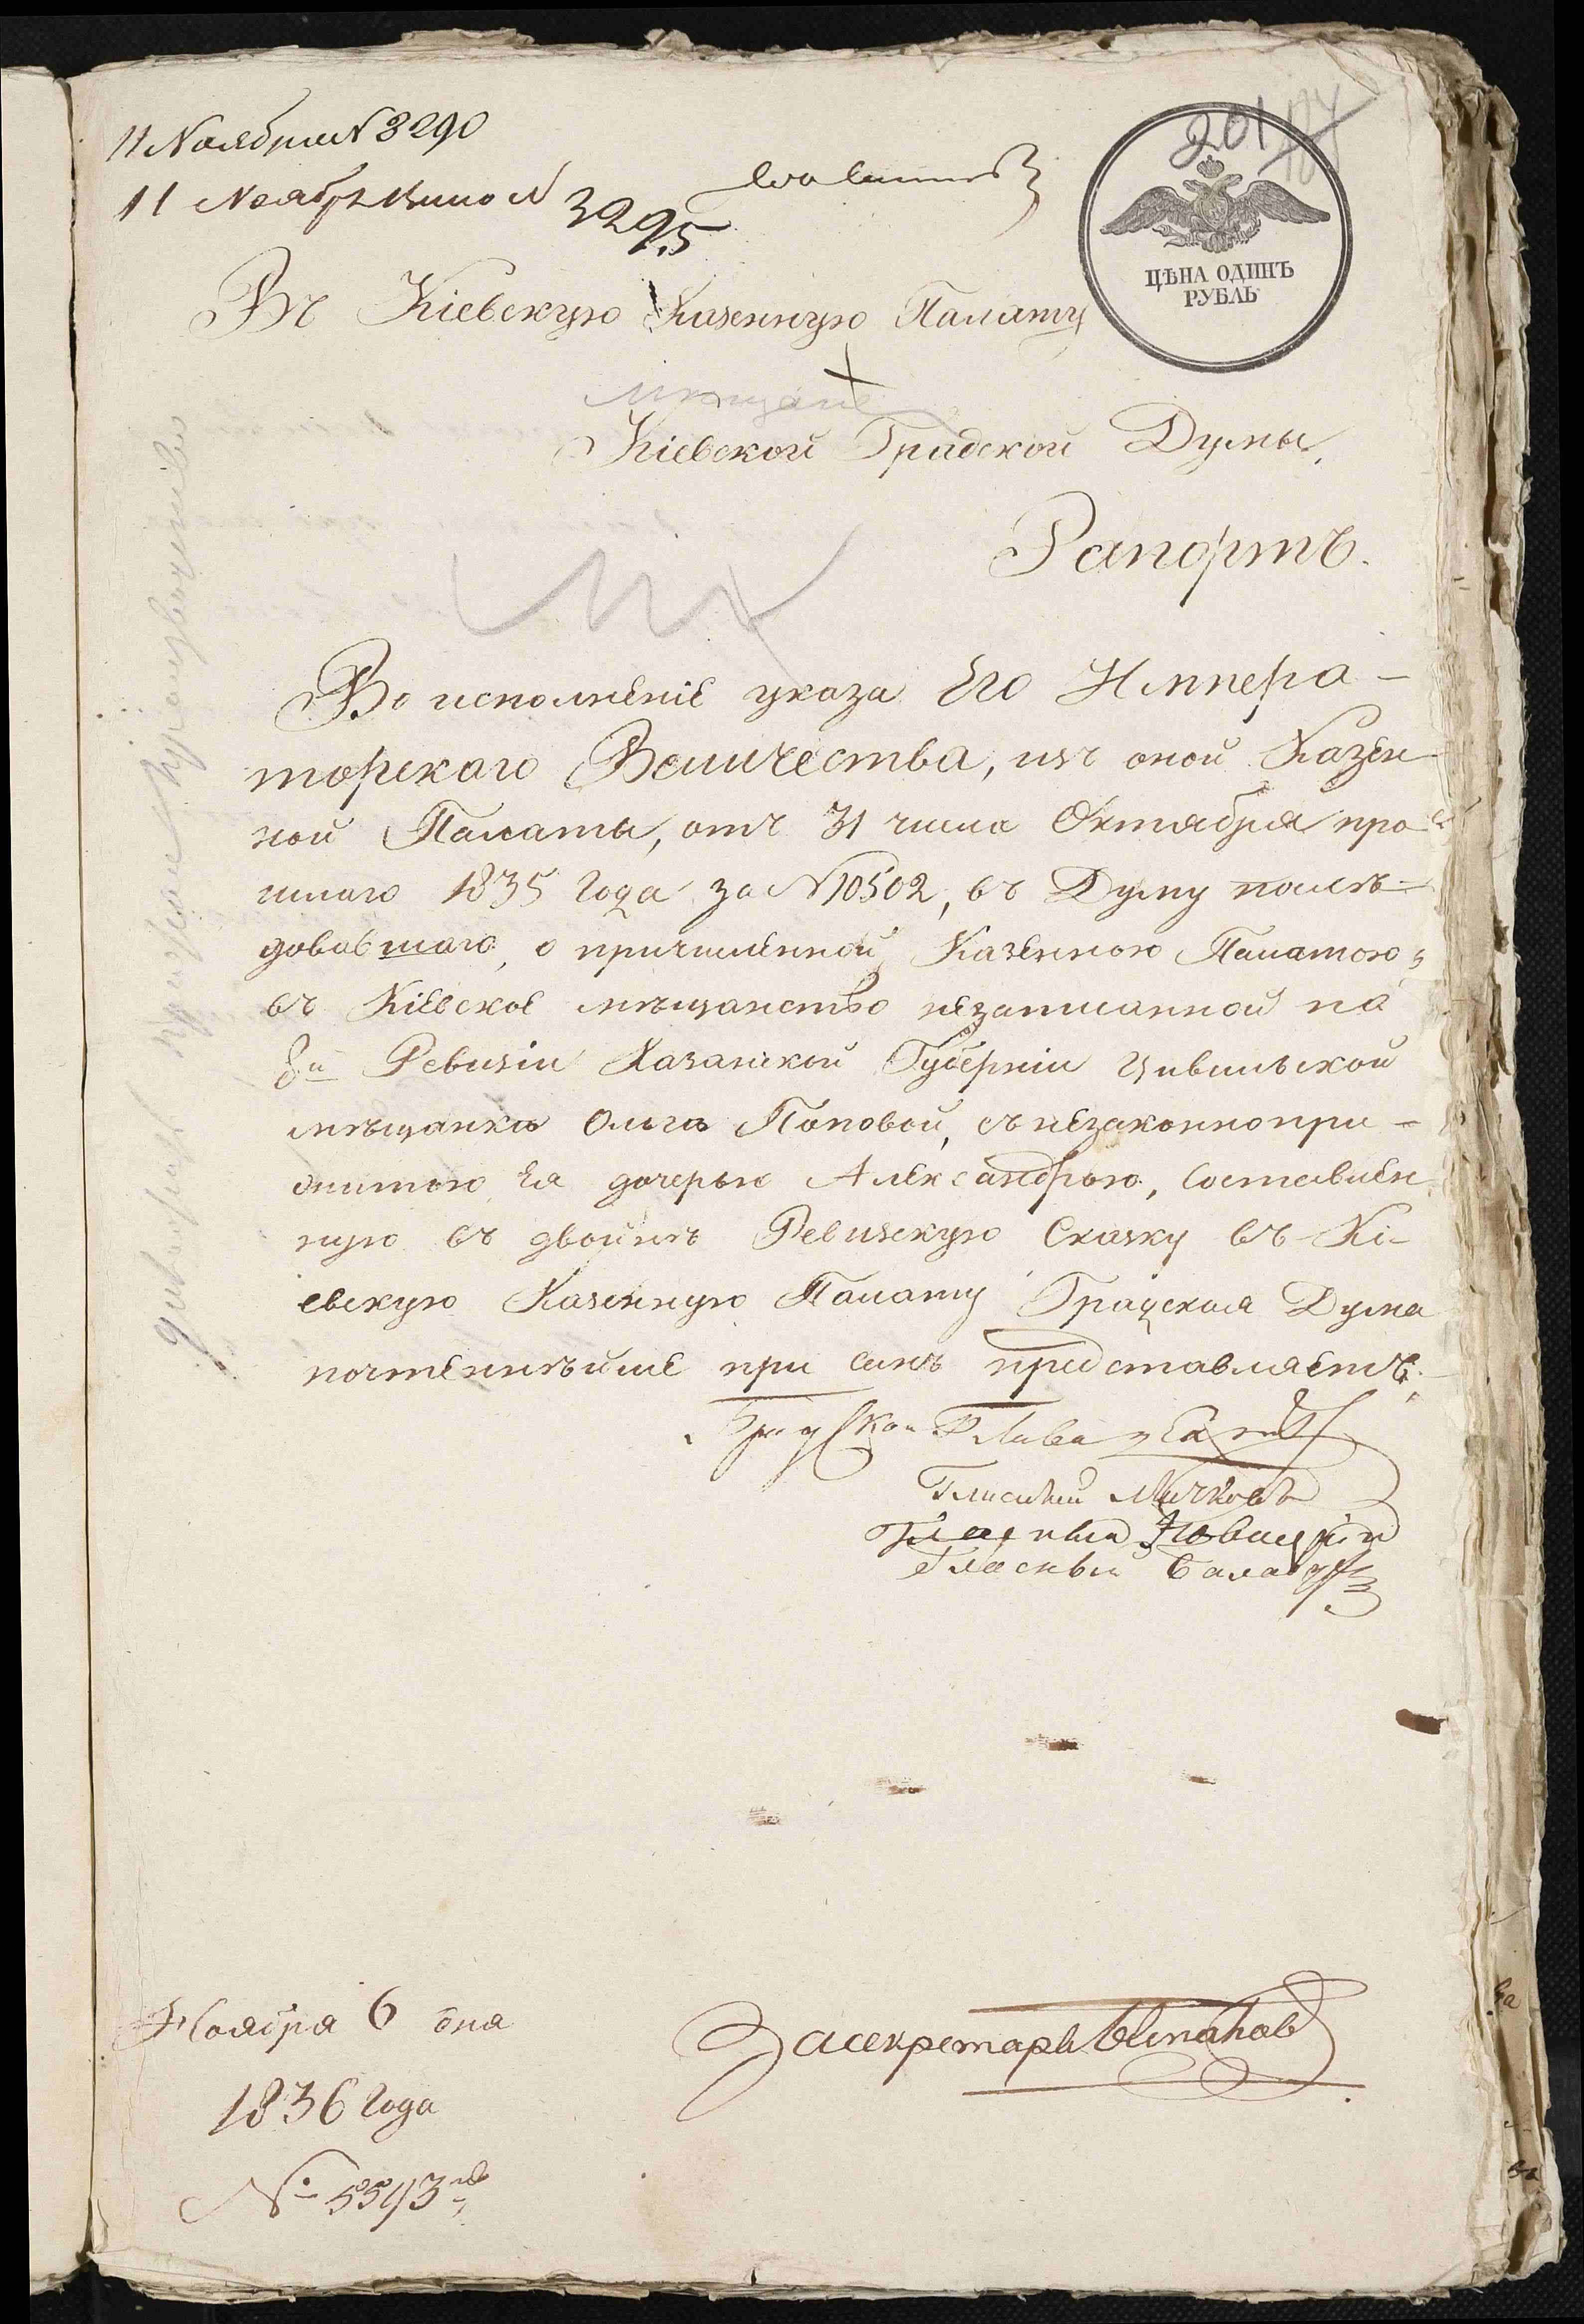 11 Ноября N 3290
11 Ноября N 3295
201
ЦѢНА ОДИНЪ
РУБЛЬ
Въ Кіевскую Казенную Палату
мѣщане
Кіевской Градской Думы,
Рапортъ.
Во исполненіе указа Его Импера-
торскаго Величества, изъ оной Казен-
ной Палаты, отъ 31 числа Октября про-
шлаго 1835 года за N 10502, въ Думу послѣ-
довавшаго, о причисленной Казенною Палатою,
въ Кіевское мѣщанство незаписанной по
8й Ревизіи Казанской Губерніи Цивильской
мѣщанки Ольги Поповой, съ незаконнопри-
житою ея дочерью Александрою, составлен-
ную въ двойнѣ Ревизскую Сказку въ Кі-
евскую Казенную Палату Градская Дума
почтеннѣйше при семъ представляетъ.
Градской Глава
Гласный Мичковъ
Гласный Новицкій
Гласный
Ноября 6 дня
1836 года
№ 5593
За секретаря